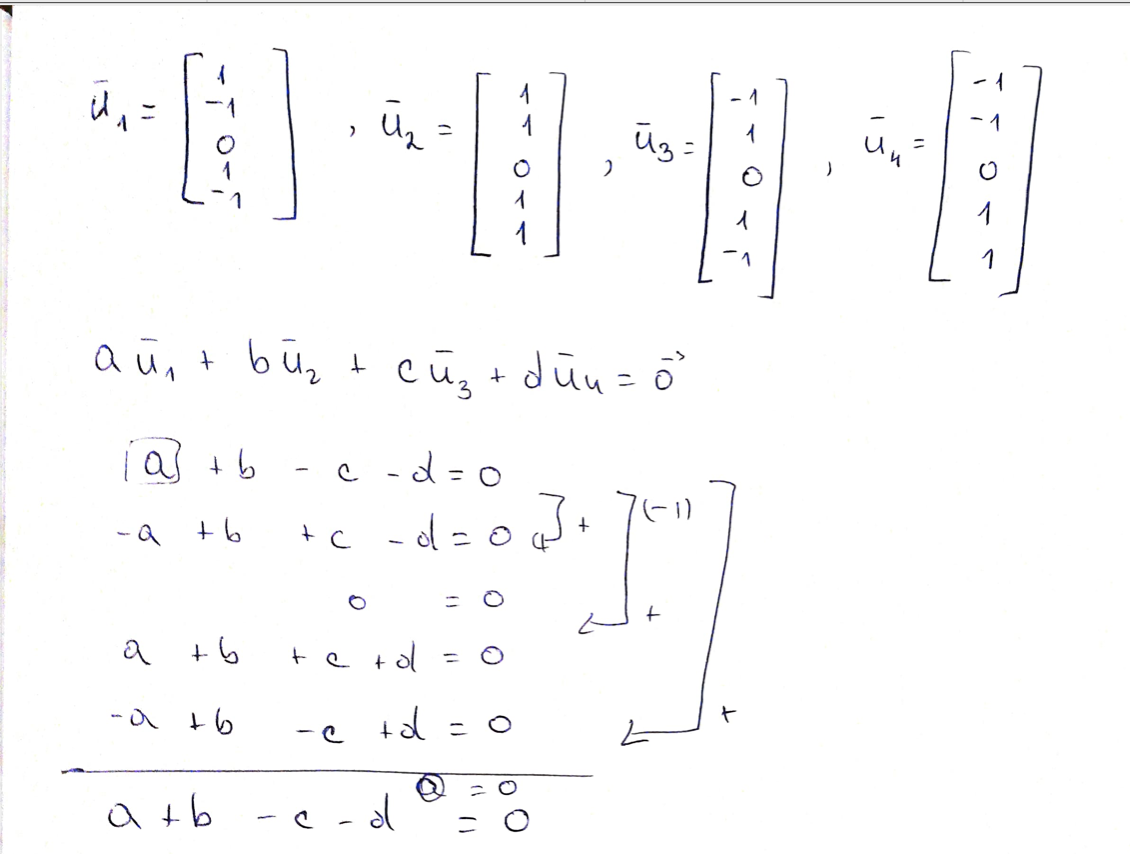 ū₁ = [1 -1 0 1 -1], ū₂ = [1 1 0 1 1], ū₃ = [-1 1 0 1 -1], ū₄ = [-1 -1 0 1 1]
a ū₁ + b ū₂ + c ū₃ + d ū₄ = 0⃗
a + b - c - d = 0
-a + b + c - d = 0 + (-1)
0 = 0 +
a + b + c + d = 0
-a + b - c + d = 0 +
a = 0
a + b - c - d = 0